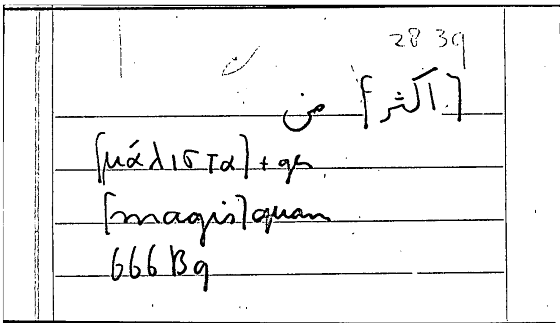 28 39
[أكثر] من
[μάλιστα] + gen
[magis] quam
666 B9